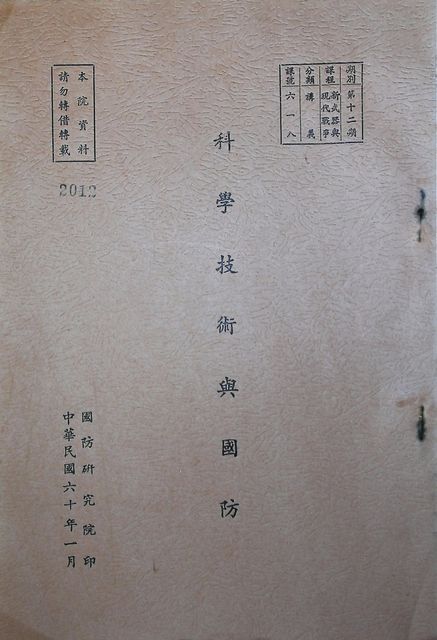 期別 第十二期
課程 新武器與現代戰爭
分類 講義
課號 六一八
科學技術與國防
本院資料
請勿轉借轉載
2012
國防研究院印
中華民國六十年一月